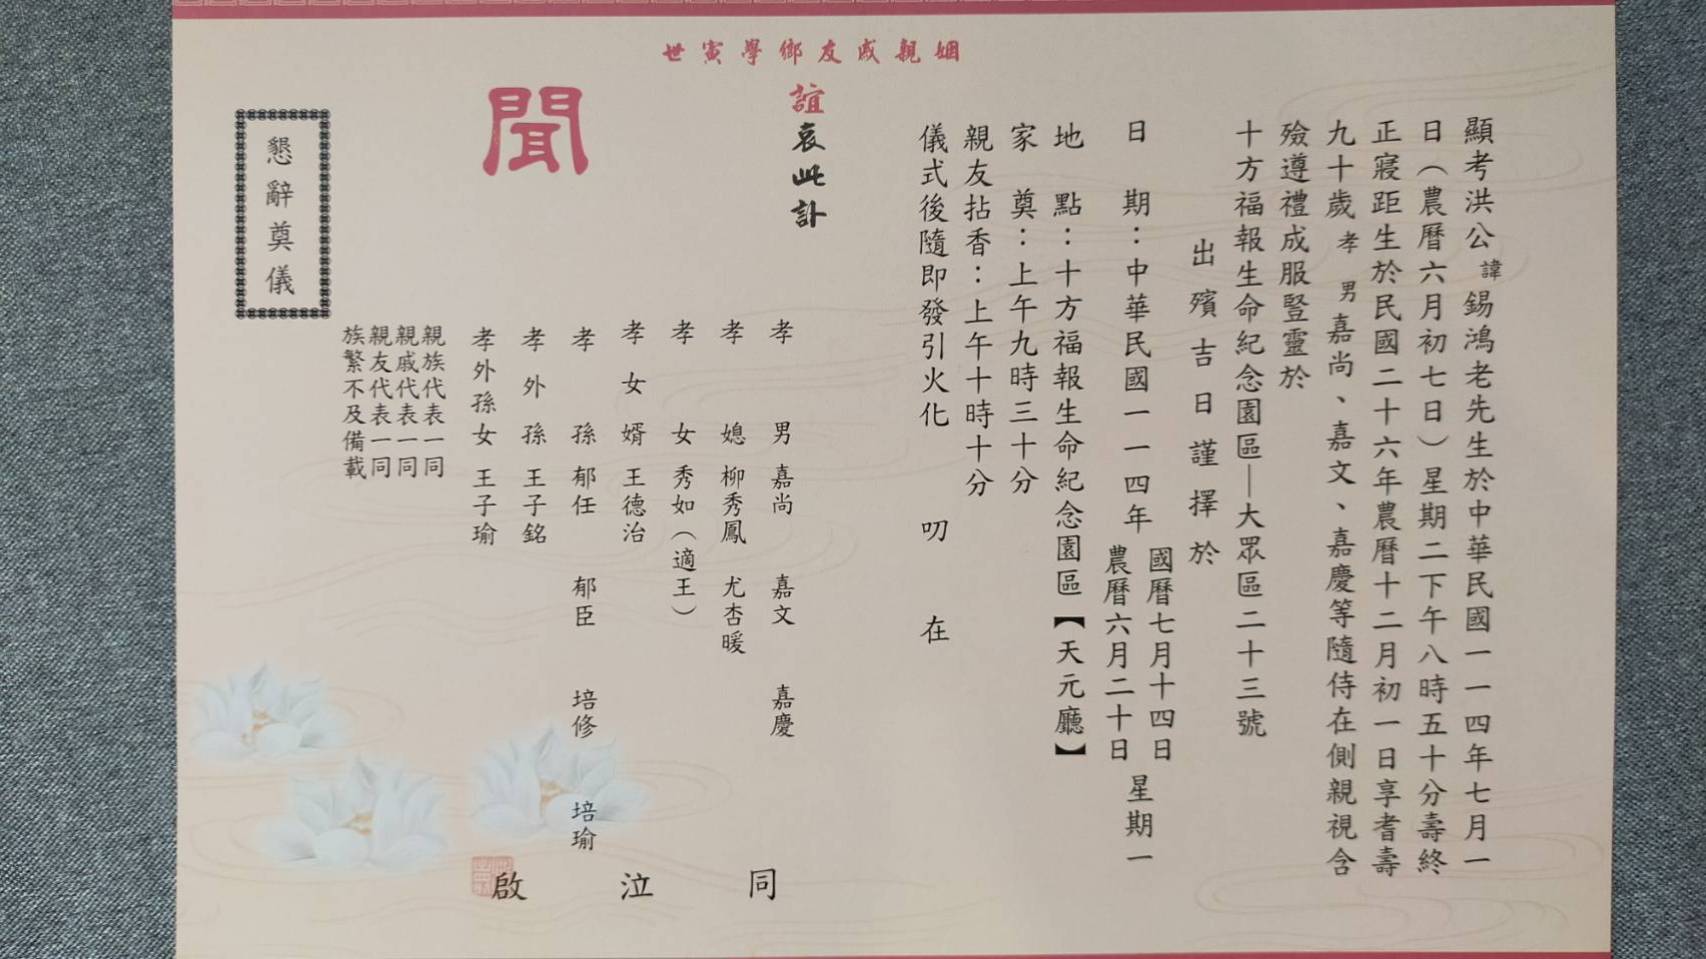 顯考洪公諱錫鴻老先生於中華民國一一四年七月一
日（農曆六月初七日）星期二下午八時五十分壽終
正寢距生於民國二十六年農曆十二月初一日享耆壽
九十歲孝男嘉尚、嘉文、嘉慶等隨侍在側親視含
殮遵禮成服豎靈於
十方福報生命紀念園區—大眾區二十三號
出殯吉日謹擇於
日期：中華民國一一四年國曆七月十四日農曆六月二十日星期一
地點：十方福報生命紀念園區【天元廳】
家奠：上午九時三十分
親友拈香：上午十時十分
儀式後隨即發引火化 叨在
姻親戚友鄉學寅世
誼哀此訃
聞
孝男 嘉尚 嘉文 嘉慶
孝媳 柳秀鳳 尤杏暖
孝女 秀如（適王）
孝女婿 王德治
孝孫 郁任 郁臣 培修 培瑜
孝外孫 王子銘
孝外孫女 王子瑜
同泣啟
親族代表一同
親戚代表一同
親友代表一同
族繁不及備載
懇辭奠儀